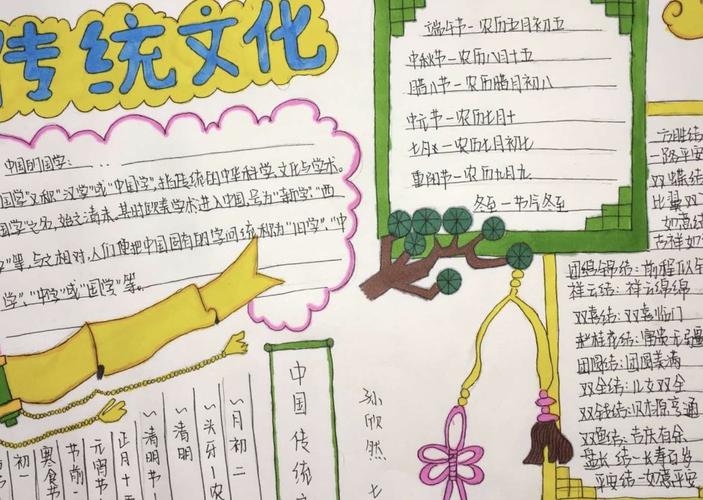 传统文化
中国的国学：
国学"又称"汉学"或"中国学"，指传统的中华科学、文化与学术。
国学"之名，始之清末。其时欧美学术进入中国，号为"新学"、"西
学"等，与之相对，人们便把中国固有的学问统称为"旧学"、"中
学"、"中学"或"国学"等。
端午节—农历五月初五
中秋节—农历八月十五
腊八节—农历腊月初八
中元节—农历七月十
七月七—农历七月初七
重阳节—农历九月九
冬至—节气冬至
方胜结：
一路平安
双蝶结：
比翼双
如意结：
吉祥如
团锦结：前程似全
祥云结：祥云绵绵
双喜结：双喜临门
团圆结：团圆美满
双全结：儿女双全
双钱结：财源亨通
双鱼结：吉庆有余
盘长结—长寿百岁
平安结—如意平安
中国传统
孙欣然
二月初二
龙头牙—农
清明
清明节
正月十五
元宵节
节前一
寒食节
初一